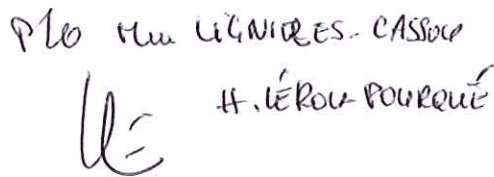 P/O Mme LIGNIERES-CASSOU
H. LÉROU-POURQUÉ